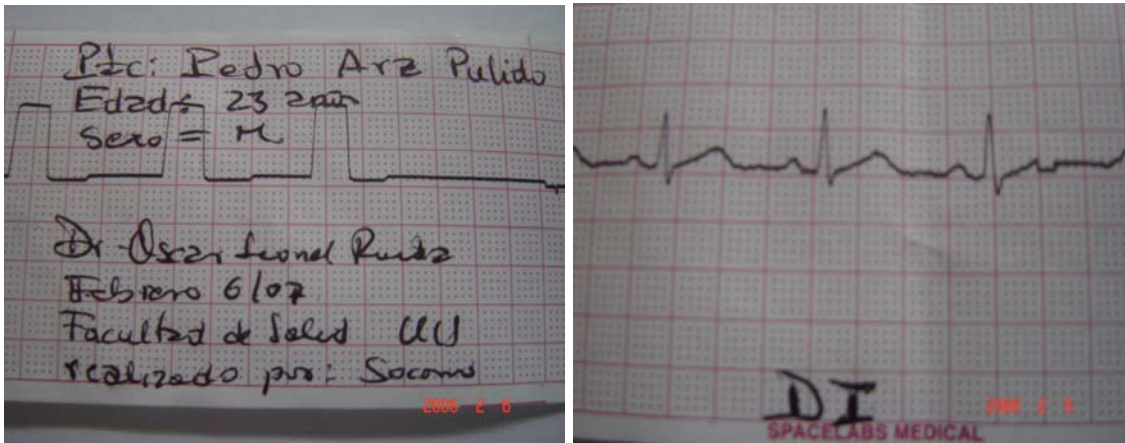 Ptc: Pedro Arz Pulido
Edad: 23 años
Sexo = M
Dr Oscar Leonel
Febrero 6/07
Facultad de Salud
realizado por: Socorro
2006 2 6
DI
SPACELABS MEDICAL